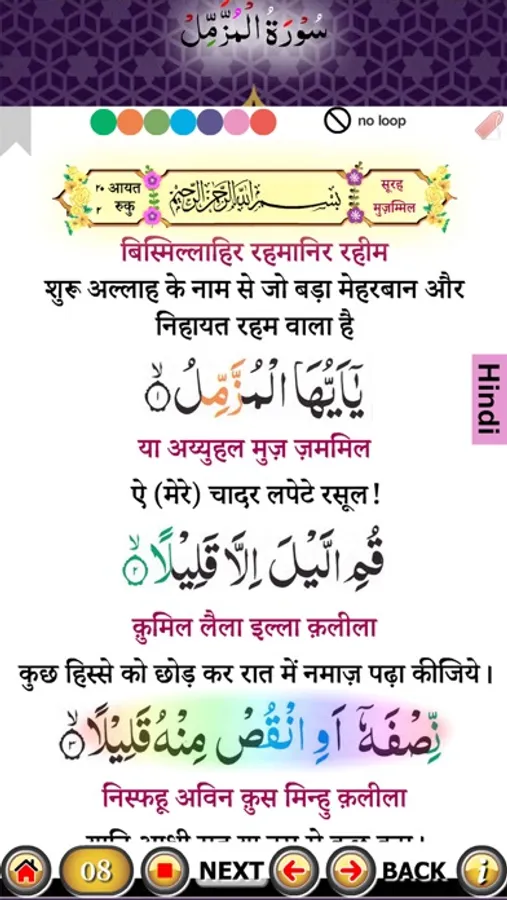 سُوْرَةُ الْمُزَّمِّلْ
no loop
٢٠ आयत
٢ रुकु
بِسْمِ اللّٰهِ الرَّحْمٰنِ الرَّحِيْمِ
सूरह
मुज़म्मिल
बिस्मिल्लाहिर रहमानिर रहीम
शुरू अल्लाह के नाम से जो बड़ा मेहरबान और
निहायत रहम वाला है
يٰٓاَيُّهَا الْمُزَّمِّلُ ۙ١
Hindi
या अय्युहल मुज़ ज़ममिल
ऐ (मेरे) चादर लपेटे रसूल!
قُمِ الَّيْلَ اِلَّا قَلِيْلًا ۙ٢
क़ुमिल लैला इल्ला क़लीला
कुछ हिस्से को छोड़ कर रात में नमाज़ पढ़ा कीजिये।
نِّصْفَهٗٓ اَوِ انْقُصْ مِنْهُ قَلِيْلًا ۙ٣
निस्फहू अविन क़ुस मिन्हु क़लीला
08 NEXT BACK i